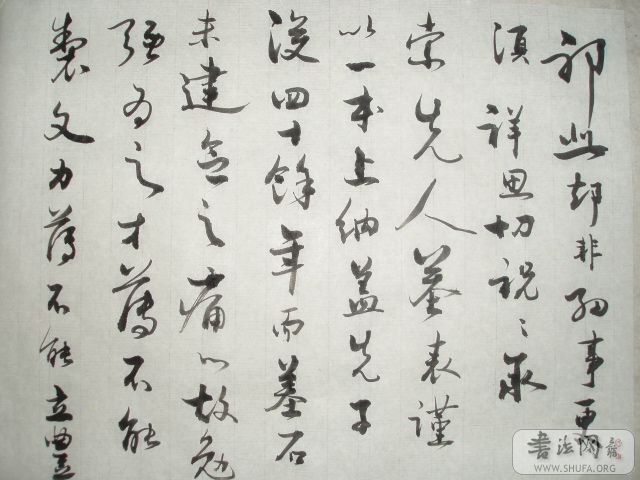 此却非細事更
須詳思切祝〻承
索先人墓表謹
以一本上納蓋先子
沒四十餘年而墓石
未建念之痛心故勉
強為之才薄不能
製文力薄不能立豐
書法网
WWW.SHUFA.ORG